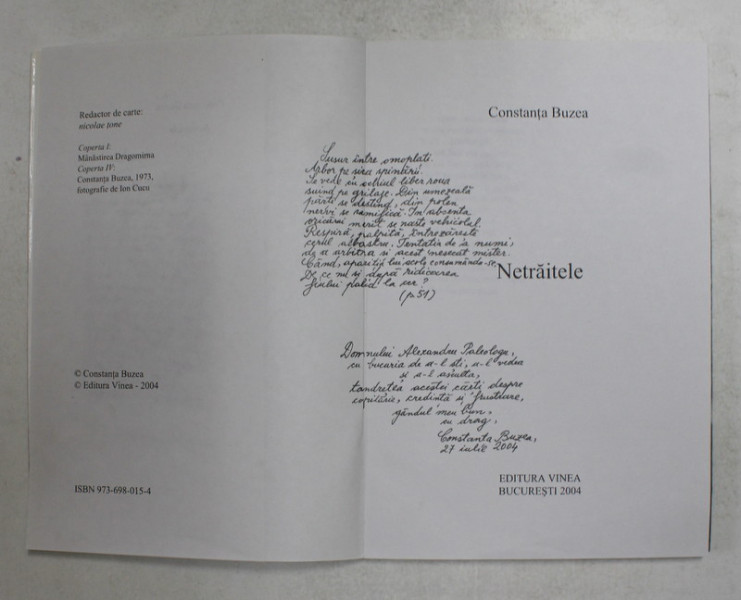 Redactor de carte:
nicolae tone
Coperta I:
Mănăstirea Dragomirna
Coperta IV:
Constanța Buzea, 1973,
fotografie de Ion Cucu
© Constanța Buzea
© Editura Vinea - 2004
ISBN 973-698-015-4
Constanța Buzea
Susur între omoplați.
Arbor pe șira spinării.
Se vede în ochiul liber roua
suind pe grilaje. Din umezeală
părți se destind, din polen
nervi se ramifică. În absența
oricărui merit se naște vehicolul.
Respiră, palpită, întrezărește
cerul albastru. Tentația de a numi,
de a arbitra și acest mister.
Când, apariții lui consumându-se,
De ce nu și după ridicarea
fiului palid la cer?
(p. 51)
Netrăitele
Domnului Alexandru Paleologu,
cu bucuria de a-l ști, a-l vedea
și a-l asculta,
tandrețea acestei cărți despre
copilărie, credință și frustrare,
gândul meu bun,
cu drag,
Constanța Buzea,
27 iulie 2004
EDITURA VINEA
BUCUREȘTI 2004